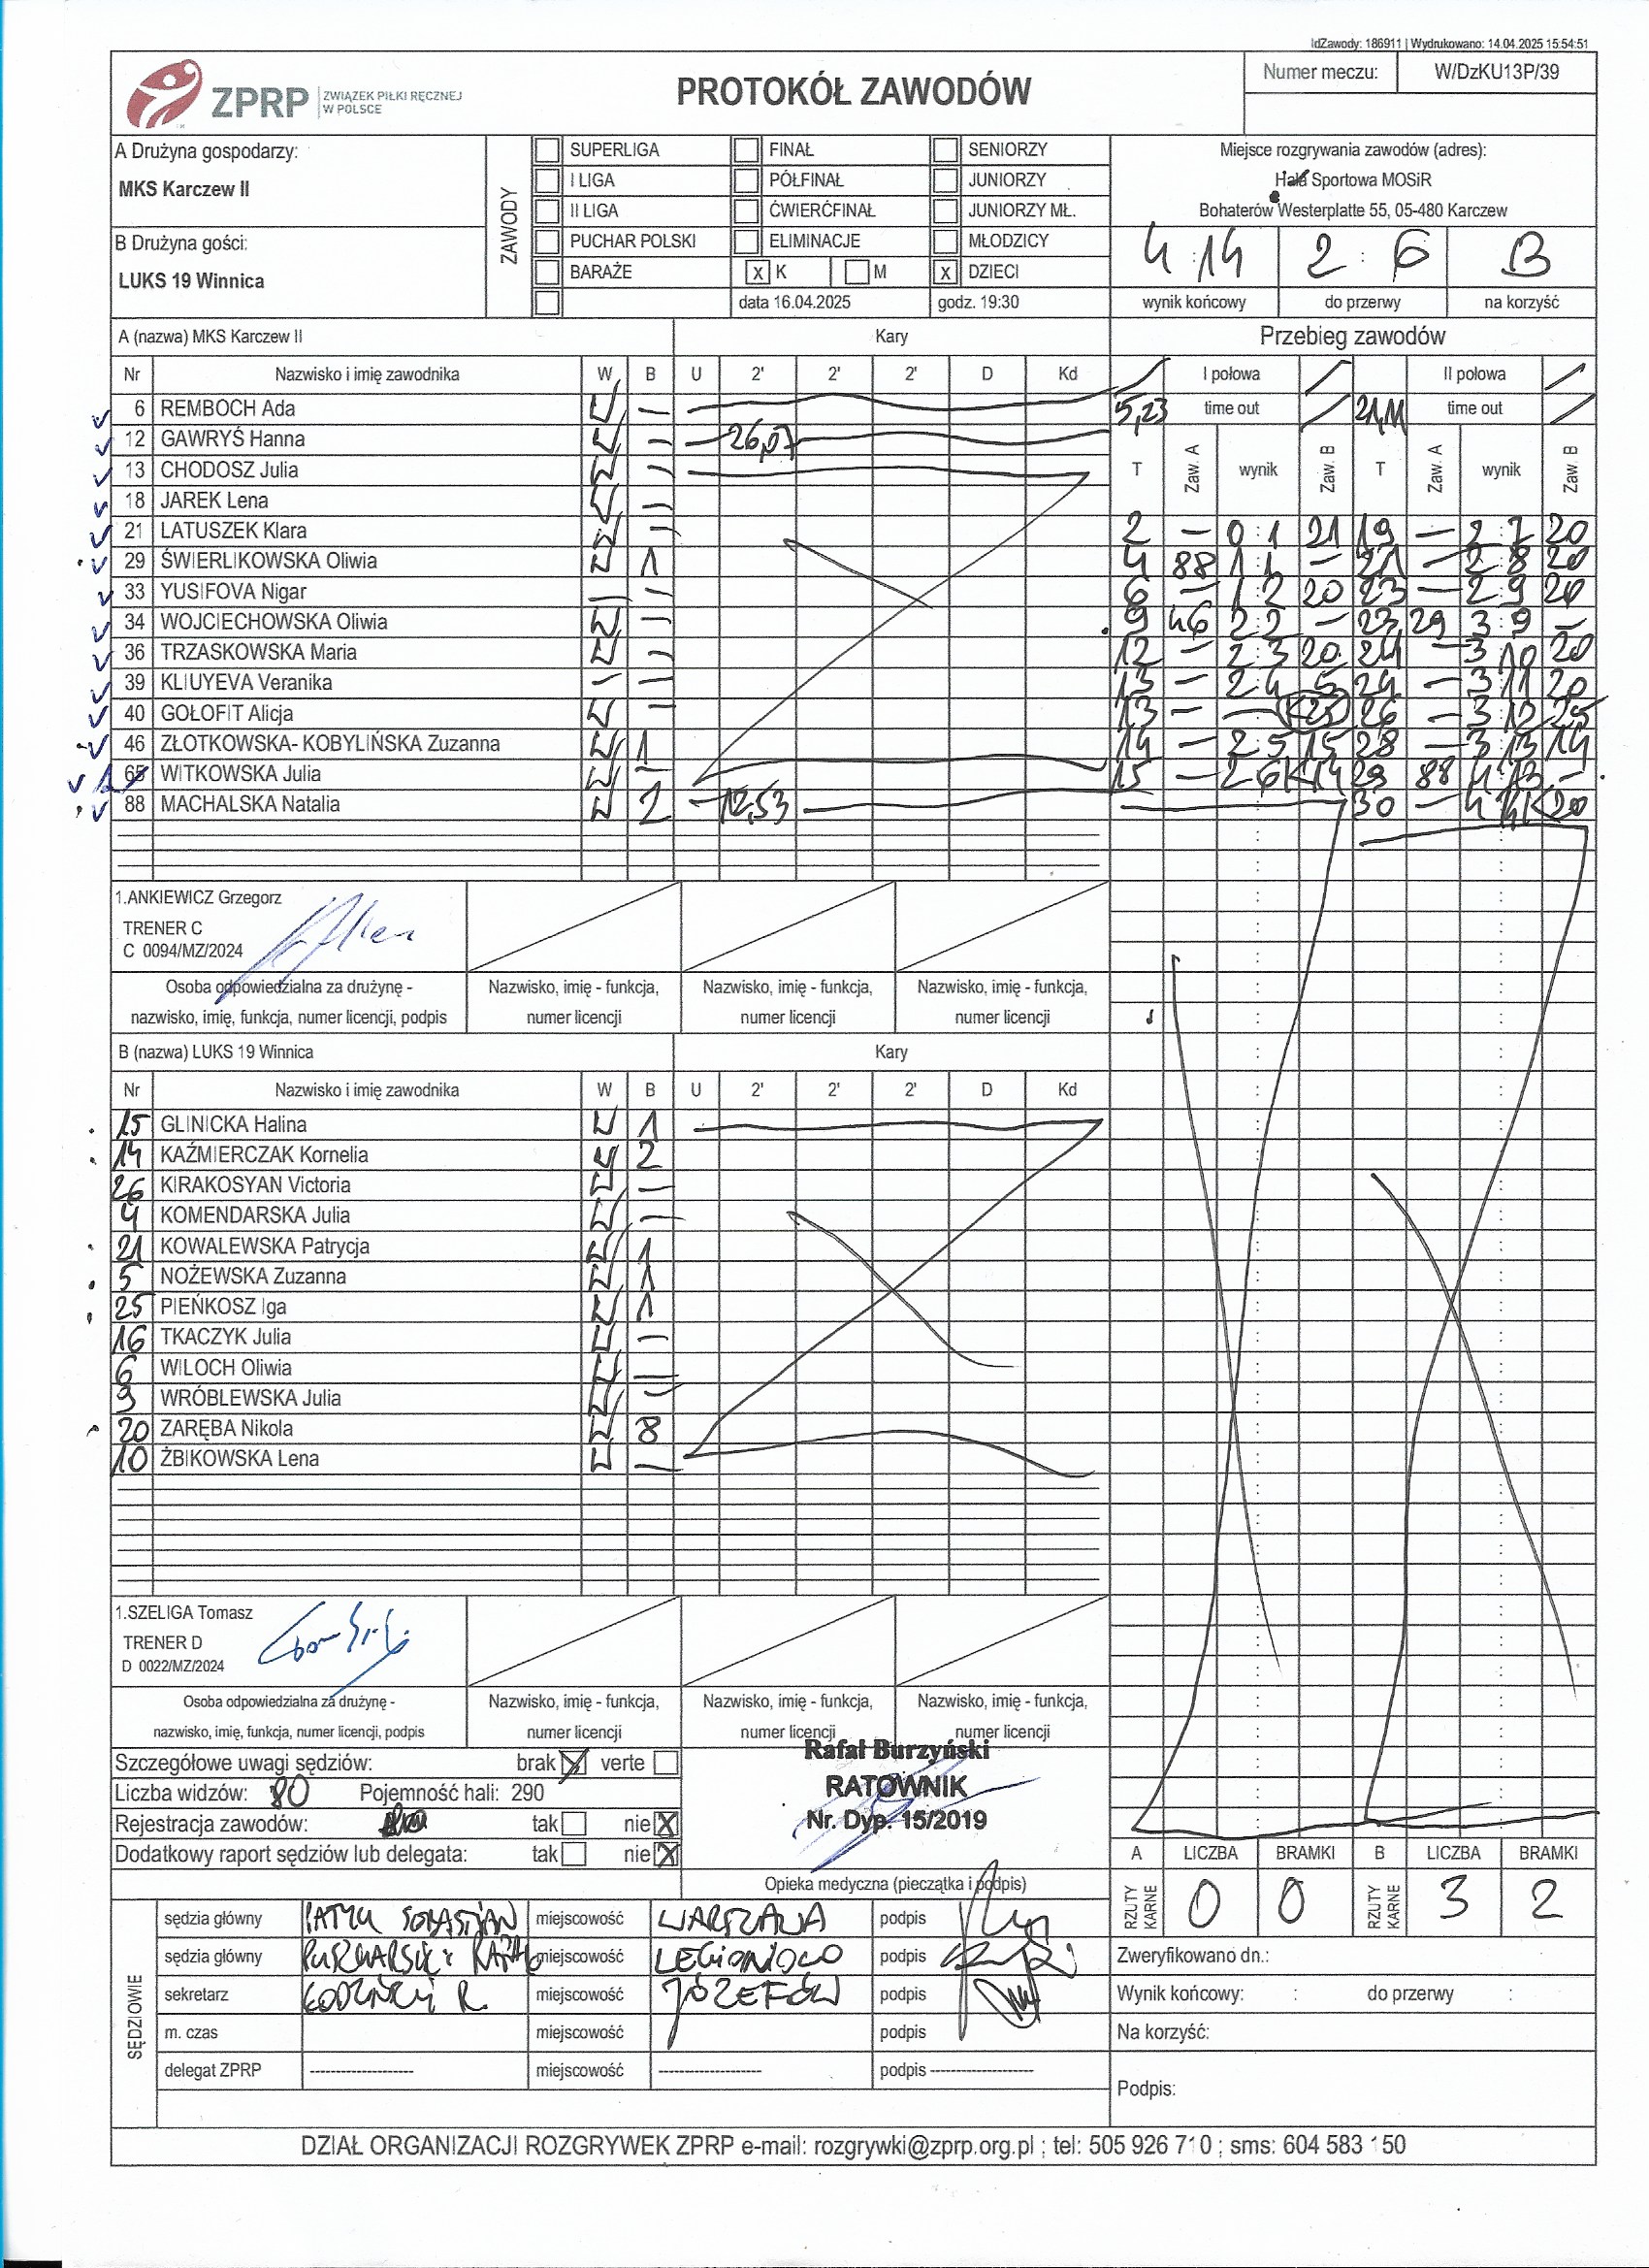 IdZawody: 186911 | Wydrukowano: 14.04.2025 15:54:51
ZPRP ZWIĄZEK PIŁKI RĘCZNEJ W POLSCE
PROTOKÓŁ ZAWODÓW
Numer meczu: W/DzKU13P/39
A Drużyna gospodarzy:
MKS Karczew II
B Drużyna gości:
LUKS 19 Winnica
ZAWODY
SUPERLIGA FINAŁ SENIORZY
I LIGA PÓŁFINAŁ JUNIORZY
II LIGA ĆWIERĆFINAŁ JUNIORZY MŁ.
PUCHAR POLSKI ELIMINACJE MŁODZICY
BARAŻE x K M x DZIECI
data 16.04.2025 godz. 19:30
Miejsce rozgrywania zawodów (adres):
Hala Sportowa MOSiR
Bohaterów Westerplatte 55, 05-480 Karczew
4 : 14 2 : 6 B
wynik końcowy do przerwy na korzyść
A (nazwa) MKS Karczew II Kary
Nr Nazwisko i imię zawodnika W B U 2' 2' 2' D Kd
6 REMBOCH Ada W —
12 GAWRYŚ Hanna W — 26,07
13 CHODOSZ Julia W —
18 JAREK Lena W —
21 LATUSZEK Klara W —
29 ŚWIERLIKOWSKA Oliwia W 1
33 YUSIFOVA Nigar — —
34 WOJCIECHOWSKA Oliwia W —
36 TRZASKOWSKA Maria W —
39 KLIUYEVA Veranika — —
40 GOŁOFIT Alicja W —
46 ZŁOTKOWSKA- KOBYLIŃSKA Zuzanna W 1
WITKOWSKA Julia W —
88 MACHALSKA Natalia W 2 12,53
Przebieg zawodów
I połowa II połowa
5,23 time out 21,11 time out
T Zaw. A wynik Zaw. B T Zaw. A wynik Zaw. B
2 — 0 : 1 21 19 — 2 : 7 20
4 88 1 : 1 — 21 — 2 : 8 20
6 — 1 : 2 20 23 — 2 : 9 20
9 46 2 : 2 — 23 29 3 : 9 —
12 — 2 : 3 20 24 — 3 : 10 20
13 — 2 : 4 5 24 — 3 : 11 20
13 — — K25 26 — 3 : 12 25
14 — 2 : 5 15 28 — 3 : 13 14
15 — 2 : 6 K14 29 88 4 : 13 —
30 — 4 : 14 K20
1.ANKIEWICZ Grzegorz
TRENER C
C 0094/MZ/2024
Osoba odpowiedzialna za drużynę - nazwisko, imię, funkcja, numer licencji, podpis
Nazwisko, imię - funkcja, numer licencji
Nazwisko, imię - funkcja, numer licencji
Nazwisko, imię - funkcja, numer licencji
B (nazwa) LUKS 19 Winnica Kary
Nr Nazwisko i imię zawodnika W B U 2' 2' 2' D Kd
15 GLINICKA Halina W 1
14 KAŹMIERCZAK Kornelia W 2
26 KIRAKOSYAN Victoria W —
4 KOMENDARSKA Julia W —
21 KOWALEWSKA Patrycja W 1
5 NOŻEWSKA Zuzanna W 1
25 PIEŃKOSZ Iga W 1
16 TKACZYK Julia W —
6 WILOCH Oliwia W —
9 WRÓBLEWSKA Julia W —
20 ZARĘBA Nikola W 8
10 ŻBIKOWSKA Lena W —
1.SZELIGA Tomasz
TRENER D
D 0022/MZ/2024
Osoba odpowiedzialna za drużynę - nazwisko, imię, funkcja, numer licencji, podpis
Nazwisko, imię - funkcja, numer licencji
Nazwisko, imię - funkcja, numer licencji
Nazwisko, imię - funkcja, numer licencji
Szczegółowe uwagi sędziów: brak X verte
Liczba widzów: 80 Pojemność hali: 290
Rejestracja zawodów: tak nie X
Dodatkowy raport sędziów lub delegata: tak nie X
Rafał Burzyński
RATOWNIK
Nr. Dyp. 15/2019
Opieka medyczna (pieczątka i podpis)
A LICZBA BRAMKI B LICZBA BRAMKI
RZUTY KARNE 0 0 RZUTY KARNE 3 2
SĘDZIOWIE
sędzia główny miejscowość WARSZAWA podpis
sędzia główny miejscowość LEGIONOWO podpis
sekretarz miejscowość JÓZEFÓW podpis
m. czas miejscowość podpis
delegat ZPRP ------------------- miejscowość ------------------- podpis -------------------
Zweryfikowano dn.:
Wynik końcowy: : do przerwy :
Na korzyść:
Podpis:
DZIAŁ ORGANIZACJI ROZGRYWEK ZPRP e-mail: rozgrywki@zprp.org.pl ; tel: 505 926 710 ; sms: 604 583 150